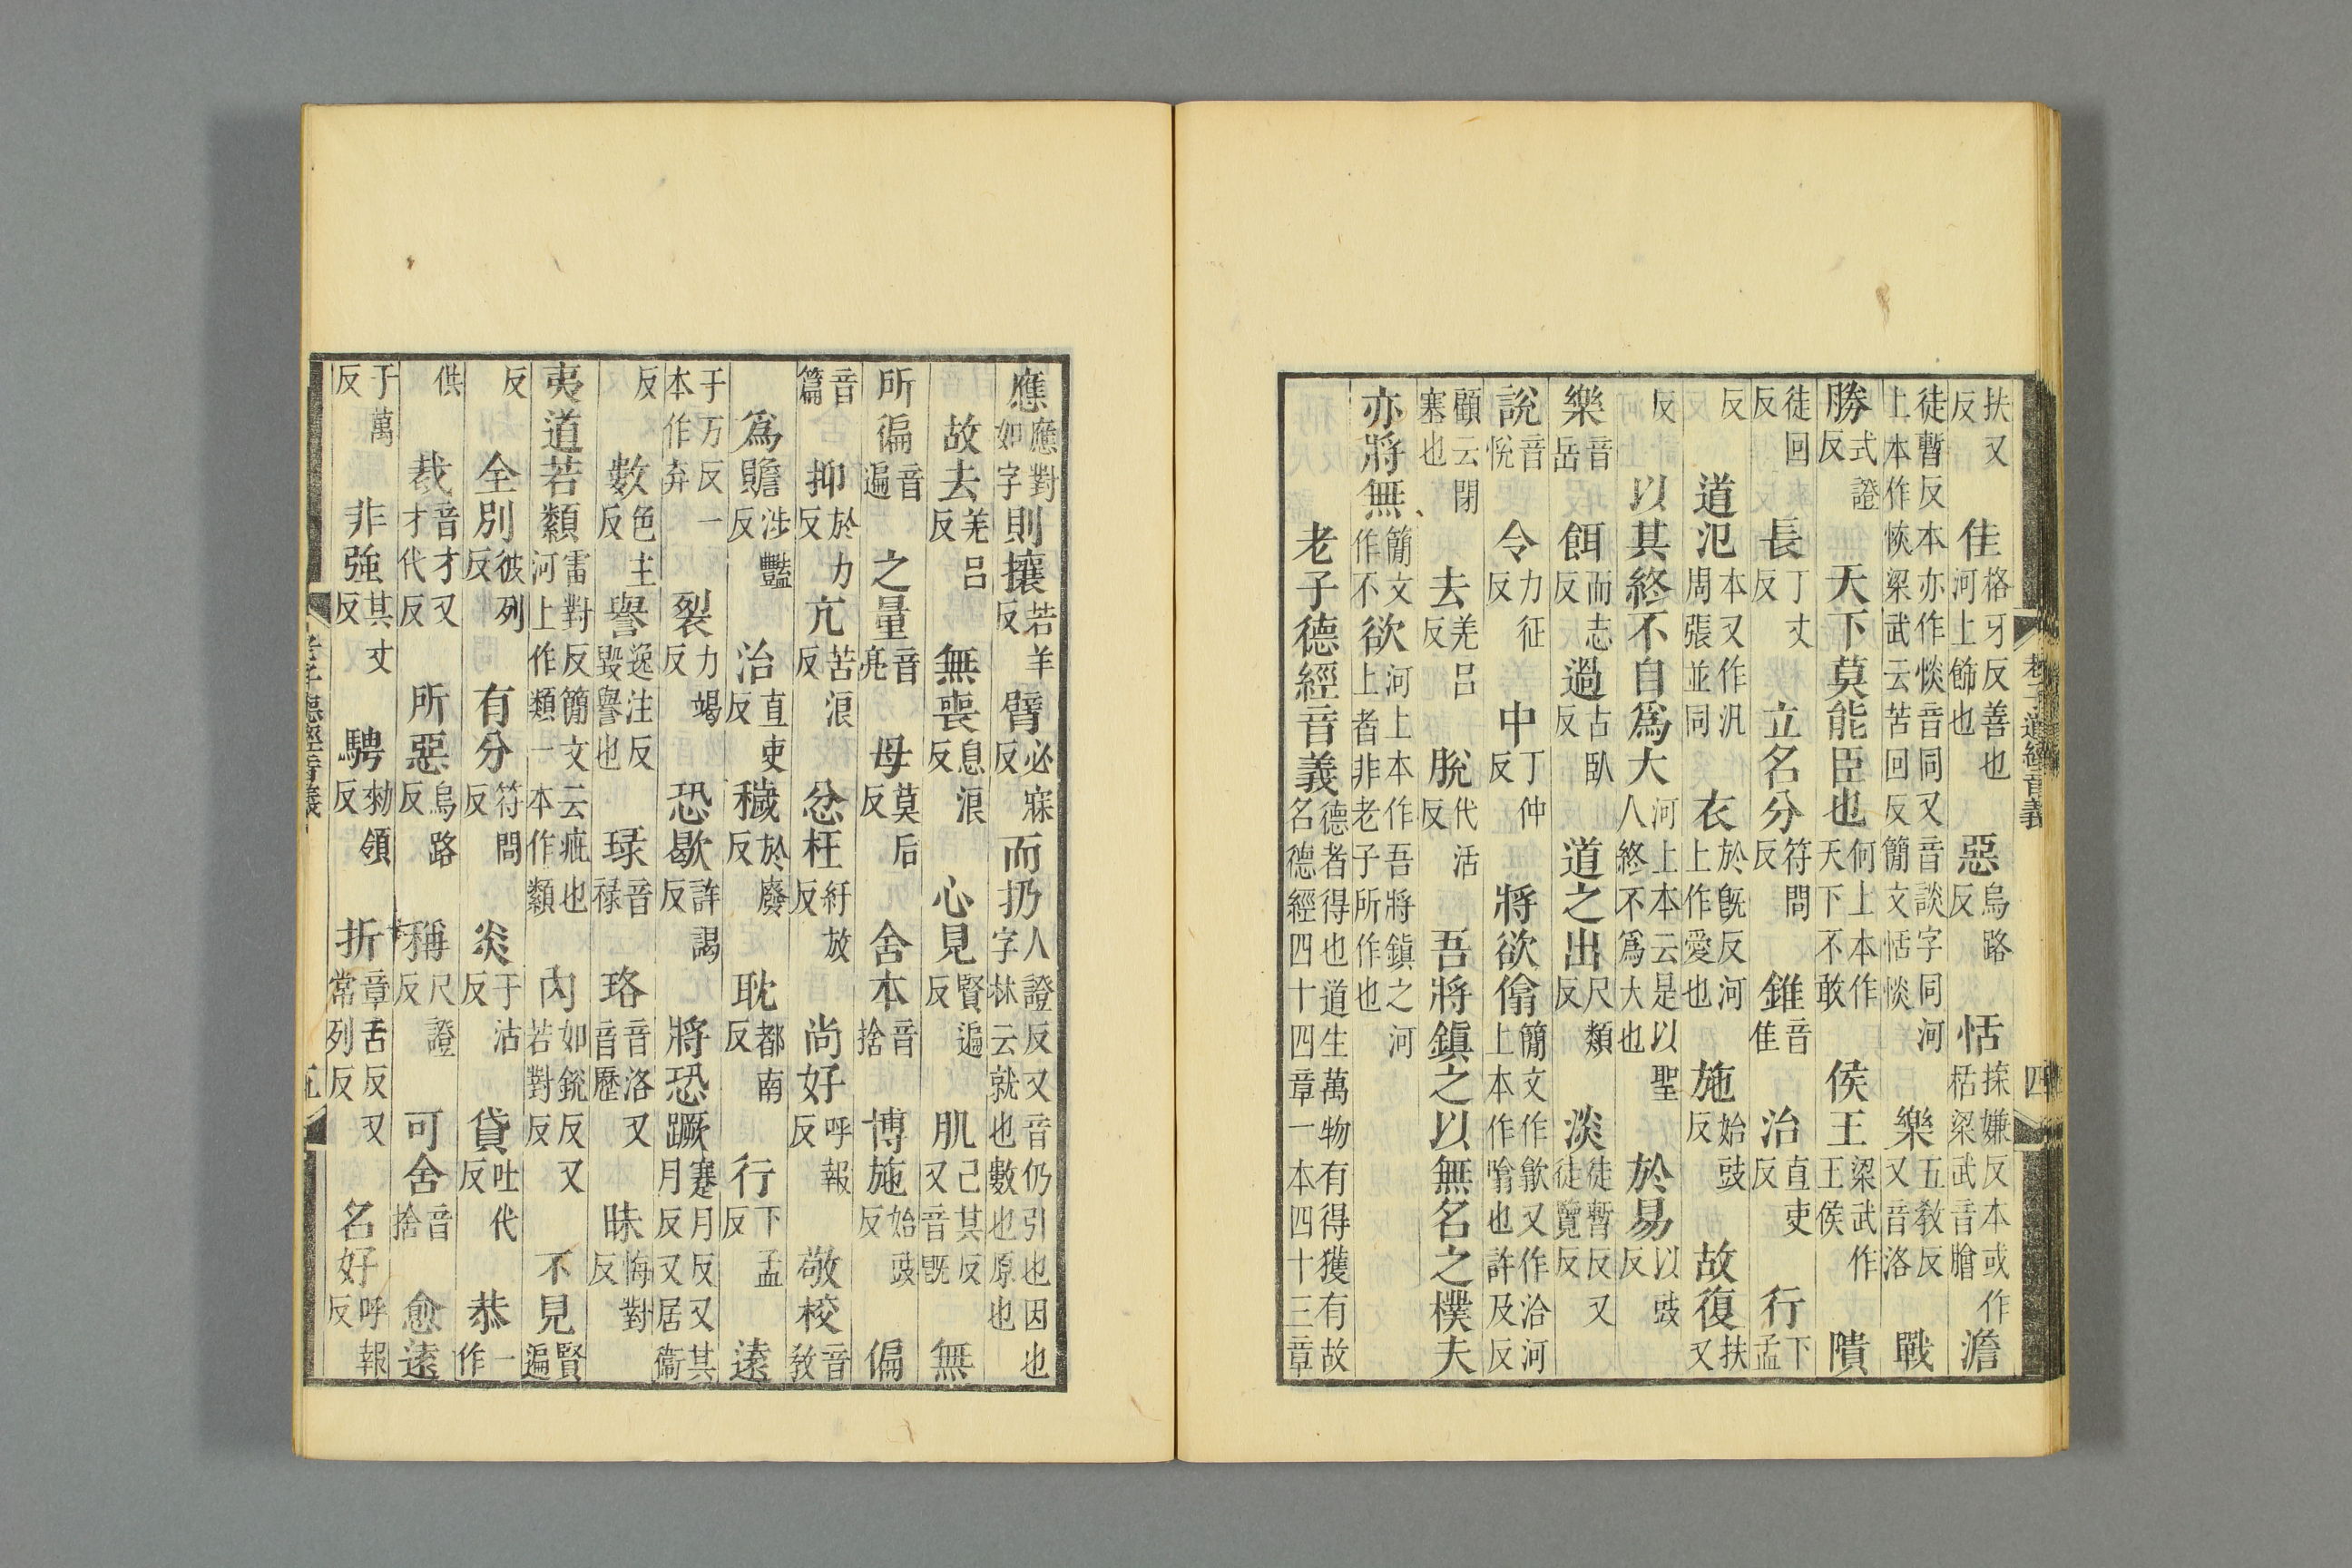 老子道經音義 四
扶又反 佳格牙反善也河上飾也 惡烏路反 恬㨓嫌反本或作栝梁武音膾 澹
徒暫反本亦作惔音同又音談字同河上本作恢梁武云苦回反簡文恬惔 樂五敎反又音洛 戰
勝式證反 天下莫能臣也何上本作天下不敢 侯王梁武作王侯 隤
徒回反 長丁丈反 立名分符問反 錐音隹 治直吏反 行下孟
反 道氾本又作汎周張並同 衣於旣反河上作愛也 施始豉反 故復扶又
反 以其終不自爲大河上本云是以聖人終不爲大也 於易以豉反
樂音岳 餌而志反 過古臥反 道之出尺類反 淡徒暫反又徒覽反
說音悅 令力征反 中丁仲反 將欲偷簡文作歙又作洽河上本作噏也許及反
顧云閉塞也 去羌呂反 脫代活反 吾將鎮之以無名之樸夫
亦將無簡文作不欲河上本作吾將鎮之河上者非老子所作也
老子德經音義德者得也道生萬物有得獲有故名德經四十四章一本四十三章
應應對如字 則攘若羊反 臂必寐反 而扔人證反又音仍引也因也字林云就也數也原也
故去羌呂反 無喪息浪反 心見賢遍反 肌己其反又音旣 無
所徧音遍 之量音亮 母莫后反 舍本音捨 博施始豉反 偏
音篇 抑於力反 亢苦浪反 忿枉紆放反 尚好呼報反 敬校音敎
爲贍涉豔反 治直吏反 穢於廢反 耽都南反 行下孟反 遠
于万反一本作弃 裂力竭反 恐歇許謁反 將恐蹶蹇月反又其月反又居衞
反 數色主反 譽逸注反毀譽也 琭音祿 珞音洛又音歷 昧悔對反
夷道若纇雷對反簡文云疵也河上作類一本作類 內如銳反又若對反 不見賢遍
反 全別彼列反 有分符問反 炎于沾反 貸吐代反 恭一作
供 裁音才又才代反 所惡烏路反 稱尺證反 可舍音捨 愈遠
于萬反 非強其丈反 騁勑領反 折章舌反又常列反 名好呼報反
老子德經音義 五